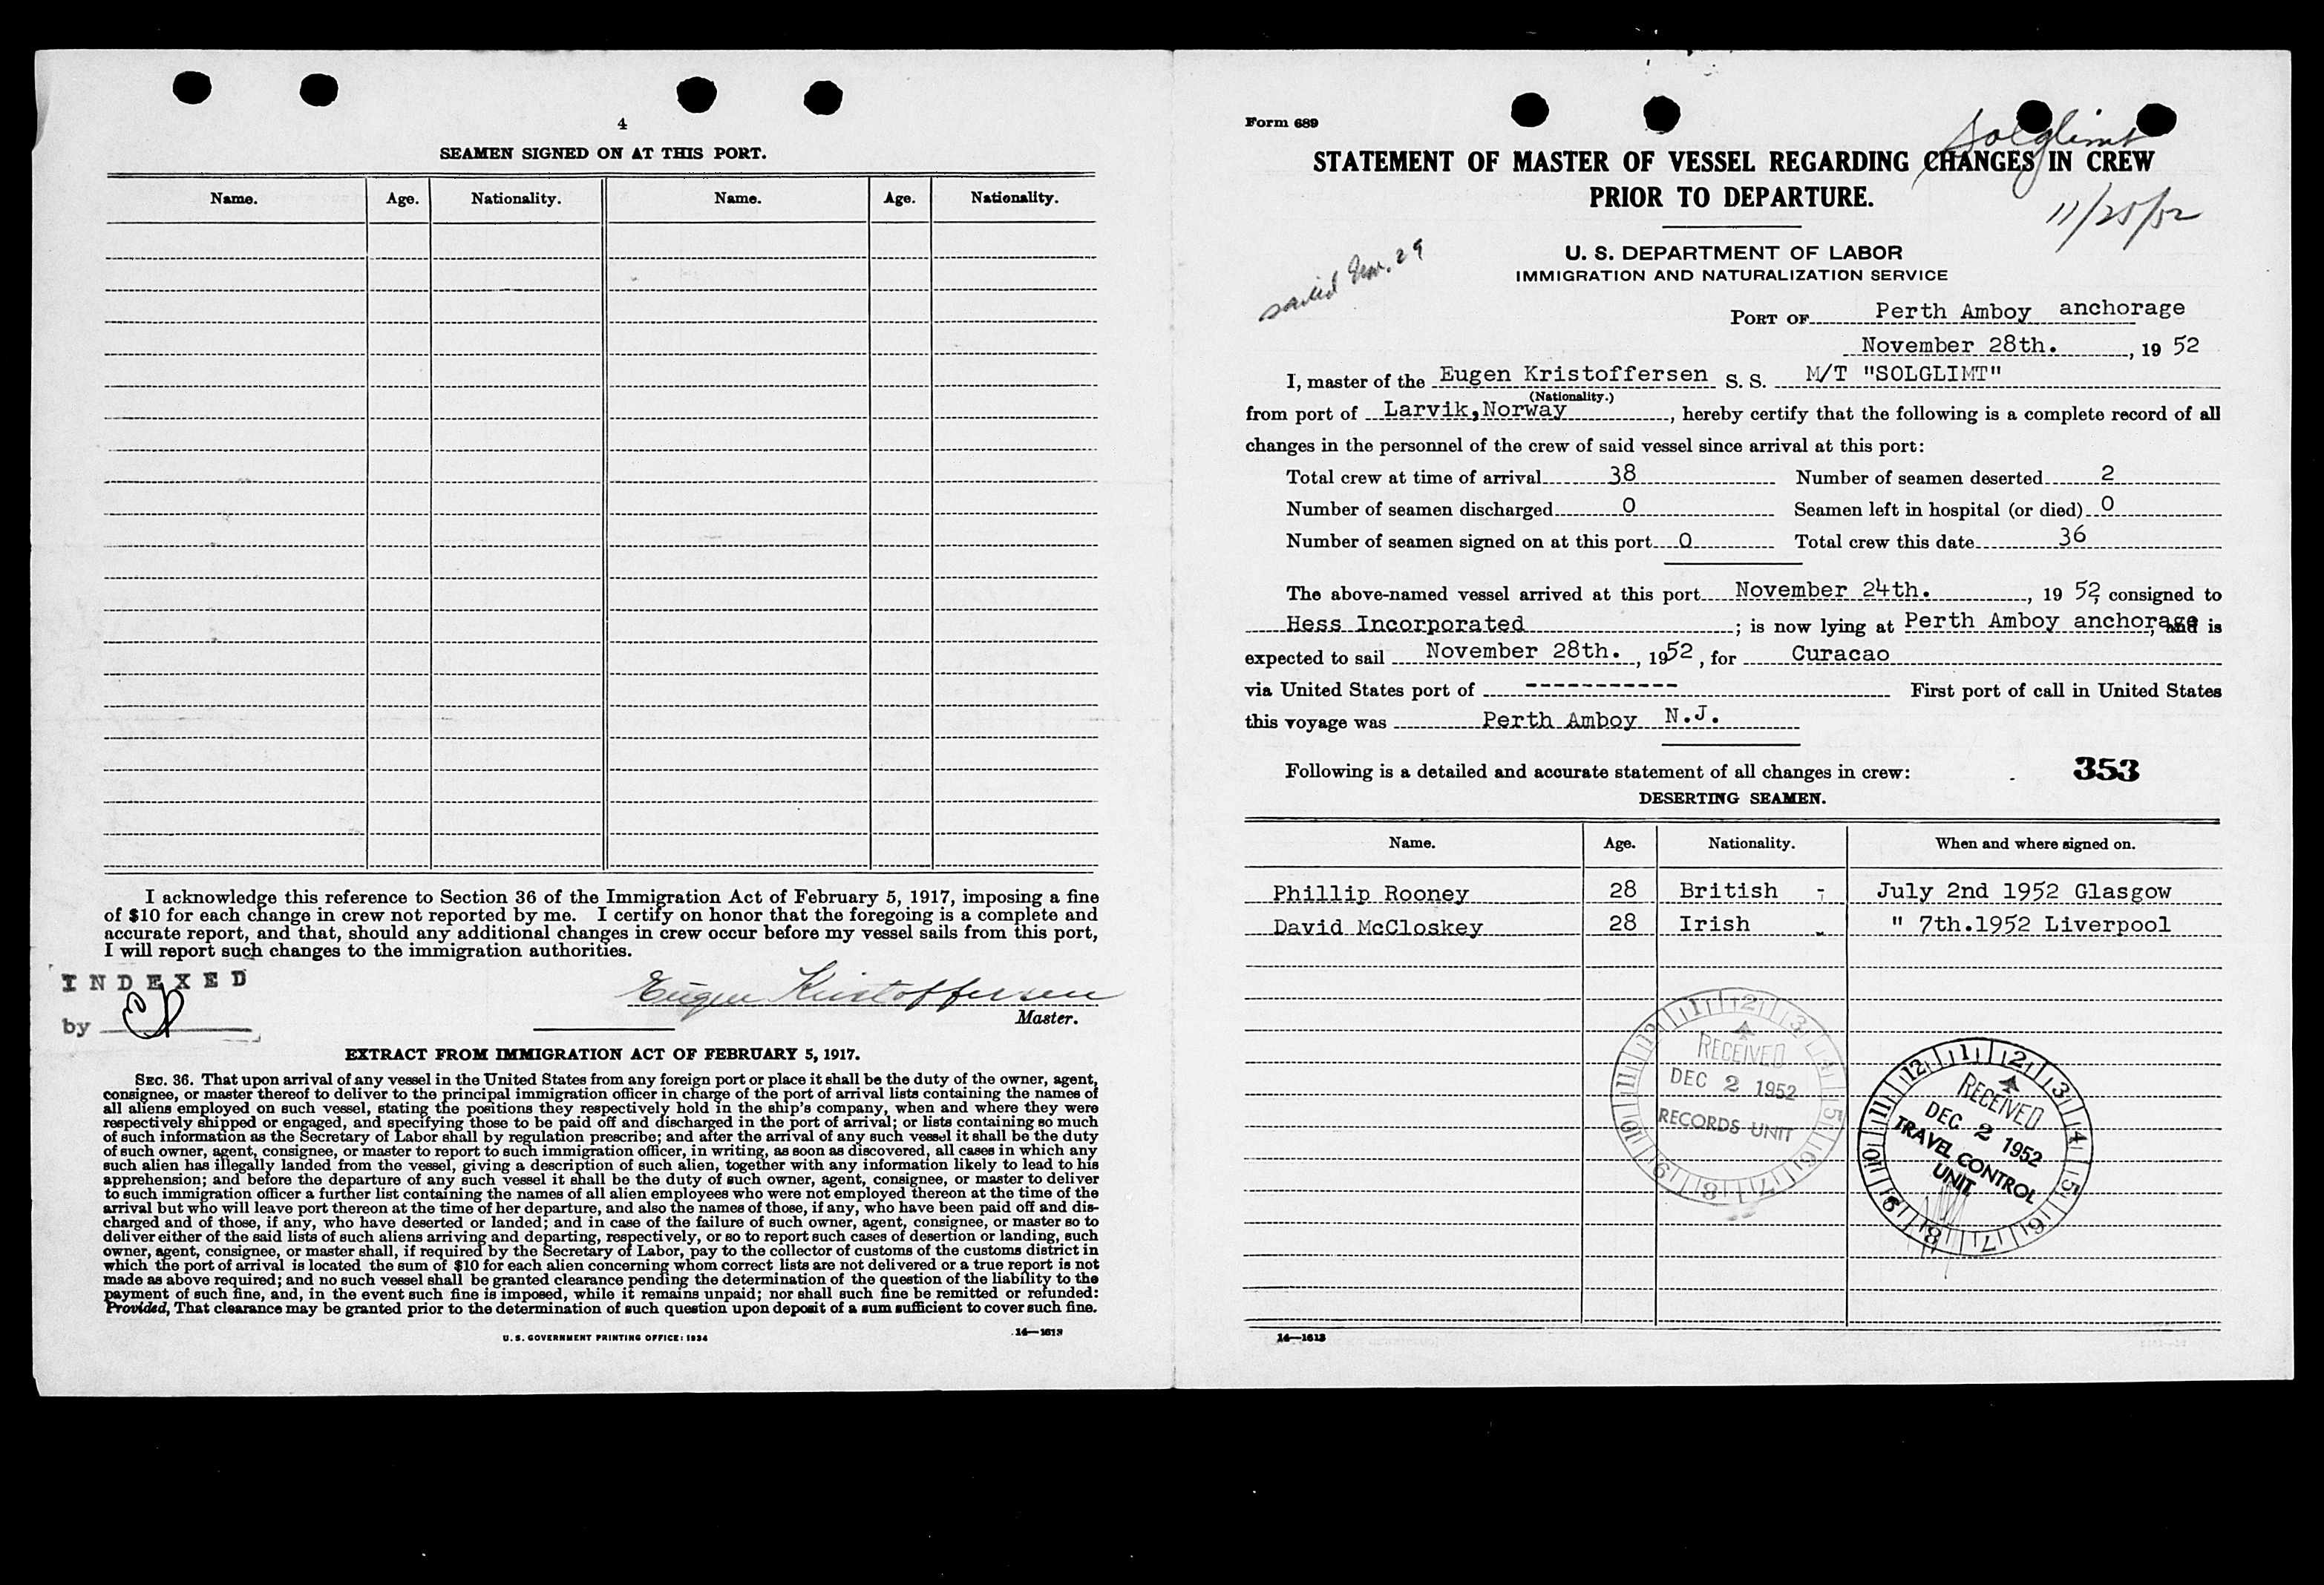 4
SEAMEN SIGNED ON AT THIS PORT.
Name. Age. Nationality. Name. Age. Nationality.
I acknowledge this reference to Section 36 of the Immigration Act of February 5, 1917, imposing a fine
of $10 for each change in crew not reported by me. I certify on honor that the foregoing is a complete and
accurate report, and that, should any additional changes in crew occur before my vessel sails from this port,
I will report such changes to the immigration authorities.
INDEXED
by
Eugen Kristoffersen
Master.
EXTRACT FROM IMMIGRATION ACT OF FEBRUARY 5, 1917.
SEC. 36. That upon arrival of any vessel in the United States from any foreign port or place it shall be the duty of the owner, agent,
consignee, or master thereof to deliver to the principal immigration officer in charge of the port of arrival lists containing the names of
all aliens employed on such vessel, stating the positions they respectively hold in the ship's company, when and where they were
respectively shipped or engaged, and specifying those to be paid off and discharged in the port of arrival; or lists containing so much
of such information as the Secretary of Labor shall by regulation prescribe; and after the arrival of any such vessel it shall be the duty
of such owner, agent, consignee, or master to report to such immigration officer, in writing, as soon as discovered, all cases in which any
such alien has illegally landed from the vessel, giving a description of such alien, together with any information likely to lead to his
apprehension; and before the departure of any such vessel it shall be the duty of such owner, agent, consignee, or master to deliver
to such immigration officer a further list containing the names of all alien employees who were not employed thereon at the time of the
arrival but who will leave port thereon at the time of her departure, and also the names of those, if any, who have been paid off and dis-
charged and of those, if any, who have deserted or landed; and in case of the failure of such owner, agent, consignee, or master so to
deliver either of the said lists of such aliens arriving and departing, respectively, or so to report such cases of desertion or landing, such
owner, agent, consignee, or master shall, if required by the Secretary of Labor, pay to the collector of customs of the customs district in
which the port of arrival is located the sum of $10 for each alien concerning whom correct lists are not delivered or a true report is not
made as above required; and no such vessel shall be granted clearance pending the determination of the question of the liability to the
payment of such fine, and, in the event such fine is imposed, while it remains unpaid; nor shall such fine be remitted or refunded:
Provided, That clearance may be granted prior to the determination of such question upon deposit of a sum sufficient to cover such fine.
U. S. GOVERNMENT PRINTING OFFICE: 1934
14—1613
Form 689
Solglimt
STATEMENT OF MASTER OF VESSEL REGARDING CHANGES IN CREW
PRIOR TO DEPARTURE.
11/25/52
sailed Nov. 29
U. S. DEPARTMENT OF LABOR
IMMIGRATION AND NATURALIZATION SERVICE
PORT OF Perth Amboy anchorage
November 28th. , 19 52
I, master of the Eugen Kristoffersen S. S. M/T "SOLGLIMT"
(Nationality.)
from port of Larvik,Norway , hereby certify that the following is a complete record of all
changes in the personnel of the crew of said vessel since arrival at this port:
Total crew at time of arrival 38 Number of seamen deserted 2
Number of seamen discharged 0 Seamen left in hospital (or died) 0
Number of seamen signed on at this port 0 Total crew this date 36
The above-named vessel arrived at this port November 24th. , 19 52, consigned to
Hess Incorporated ; is now lying at Perth Amboy anchorage, and is
expected to sail November 28th. , 1952 , for Curacao
via United States port of ------------ First port of call in United States
this voyage was Perth Amboy N.J.
Following is a detailed and accurate statement of all changes in crew:
353
DESERTING SEAMEN.
Name. Age. Nationality. When and where signed on.
Phillip Rooney 28 British - July 2nd 1952 Glasgow
David McCloskey 28 Irish - " 7th.1952 Liverpool
12 1 2 3 4 5 6 7 8 9 10 11
RECEIVED
DEC 2 1952
RECORDS UNIT
12 1 2 3 4 5 6 7 8 9 10 11
RECEIVED
DEC 2 1952
TRAVEL CONTROL
UNIT
14—1613